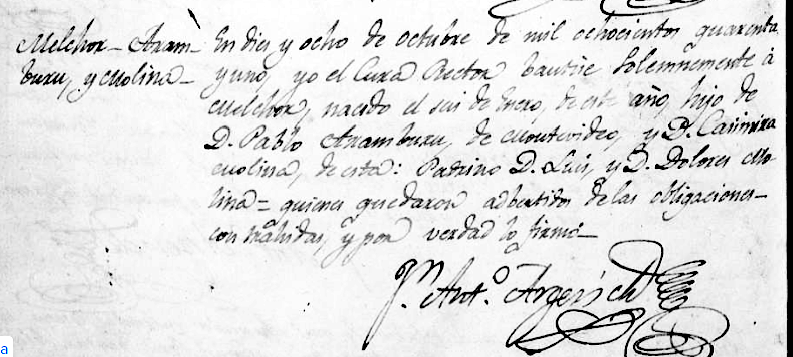 Melchor Aram-
buru, y Molina
En dies y ocho de octubre de mil ochocientos quarenta
y uno, yo el Cura Rector bautise Solemnemente à
Melchor, nacido el seis de Enero, de este año, hijo de
D. Pablo Aramburu, de Montevideo, y Dª. Casimira
Molina, de esta: Padrino D. Luis, y D. Dolores Mo-
lina = quienes quedaron adbertidos de las obligaciones
contrahidas, y por verdad lo firmo
Jn. Anto. Argerich
a